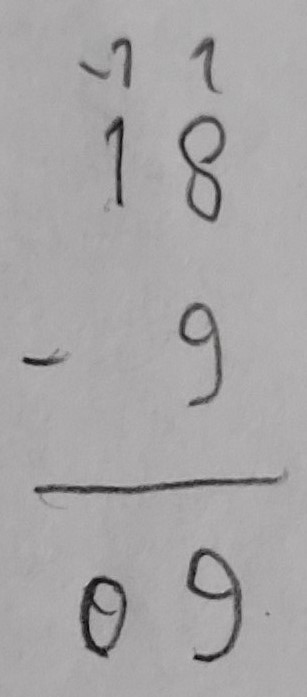 -1 1
1 8
- 9
0 9